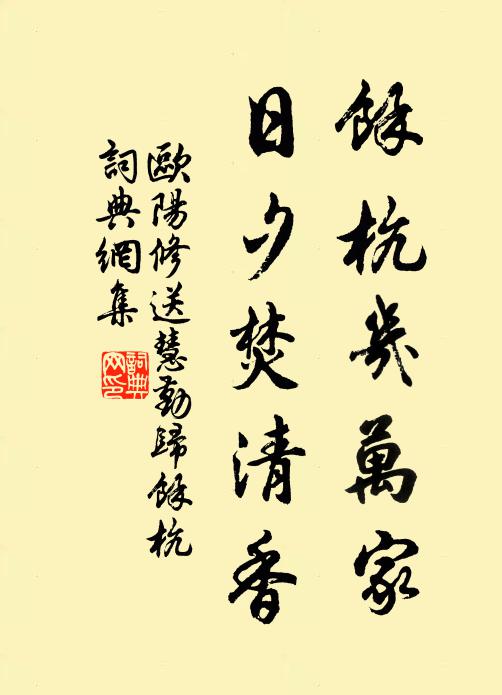 餘杭幾萬家
日夕焚清香
歐陽修送慧勤歸餘杭
詞典網集
詞典
网印